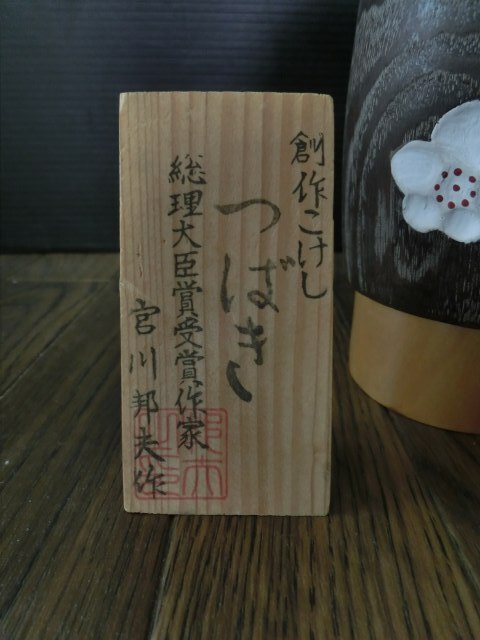 創作こけし
つばき
総理大臣賞受賞作家
宮川邦夫作